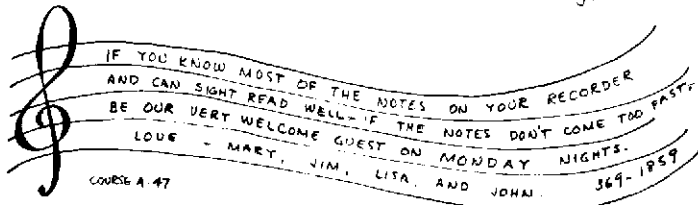 IF YOU KNOW MOST OF THE NOTES ON YOUR RECORDER
AND CAN SIGHT READ WELL - IF THE NOTES DON'T COME TOO FAST,
BE OUR VERY WELCOME GUEST ON MONDAY NIGHTS.
LOVE - MARY, JIM, LISA, AND JOHN. 369-1859
COURSE A-47